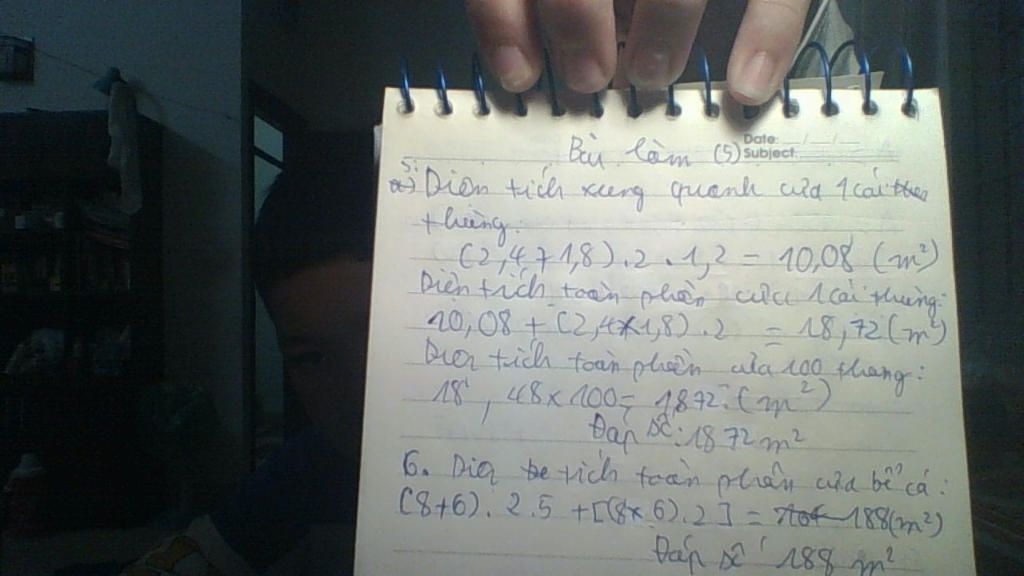 Bài làm (5) Date: __/__/__
Subject:
5:
a) Diện tích xung quanh của 1 cái
thùng:
(2,4 + 1,8) . 2 . 1,2 = 10,08 (m²)
Diện tích toàn phần của 1 cái thùng:
10,08 + (2,4 x 1,8) . 2 = 18,72 (m²)
Diện tích toàn phần của 100 thùng:
18, 48 x 100 = 1872 (m²)
Đáp số: 1872 m²
6. Diện tích toàn phần của bể cá:
(8+6) . 2.5 + [(8 x 6) . 2] = 188 (m²)
Đáp số 188 m²